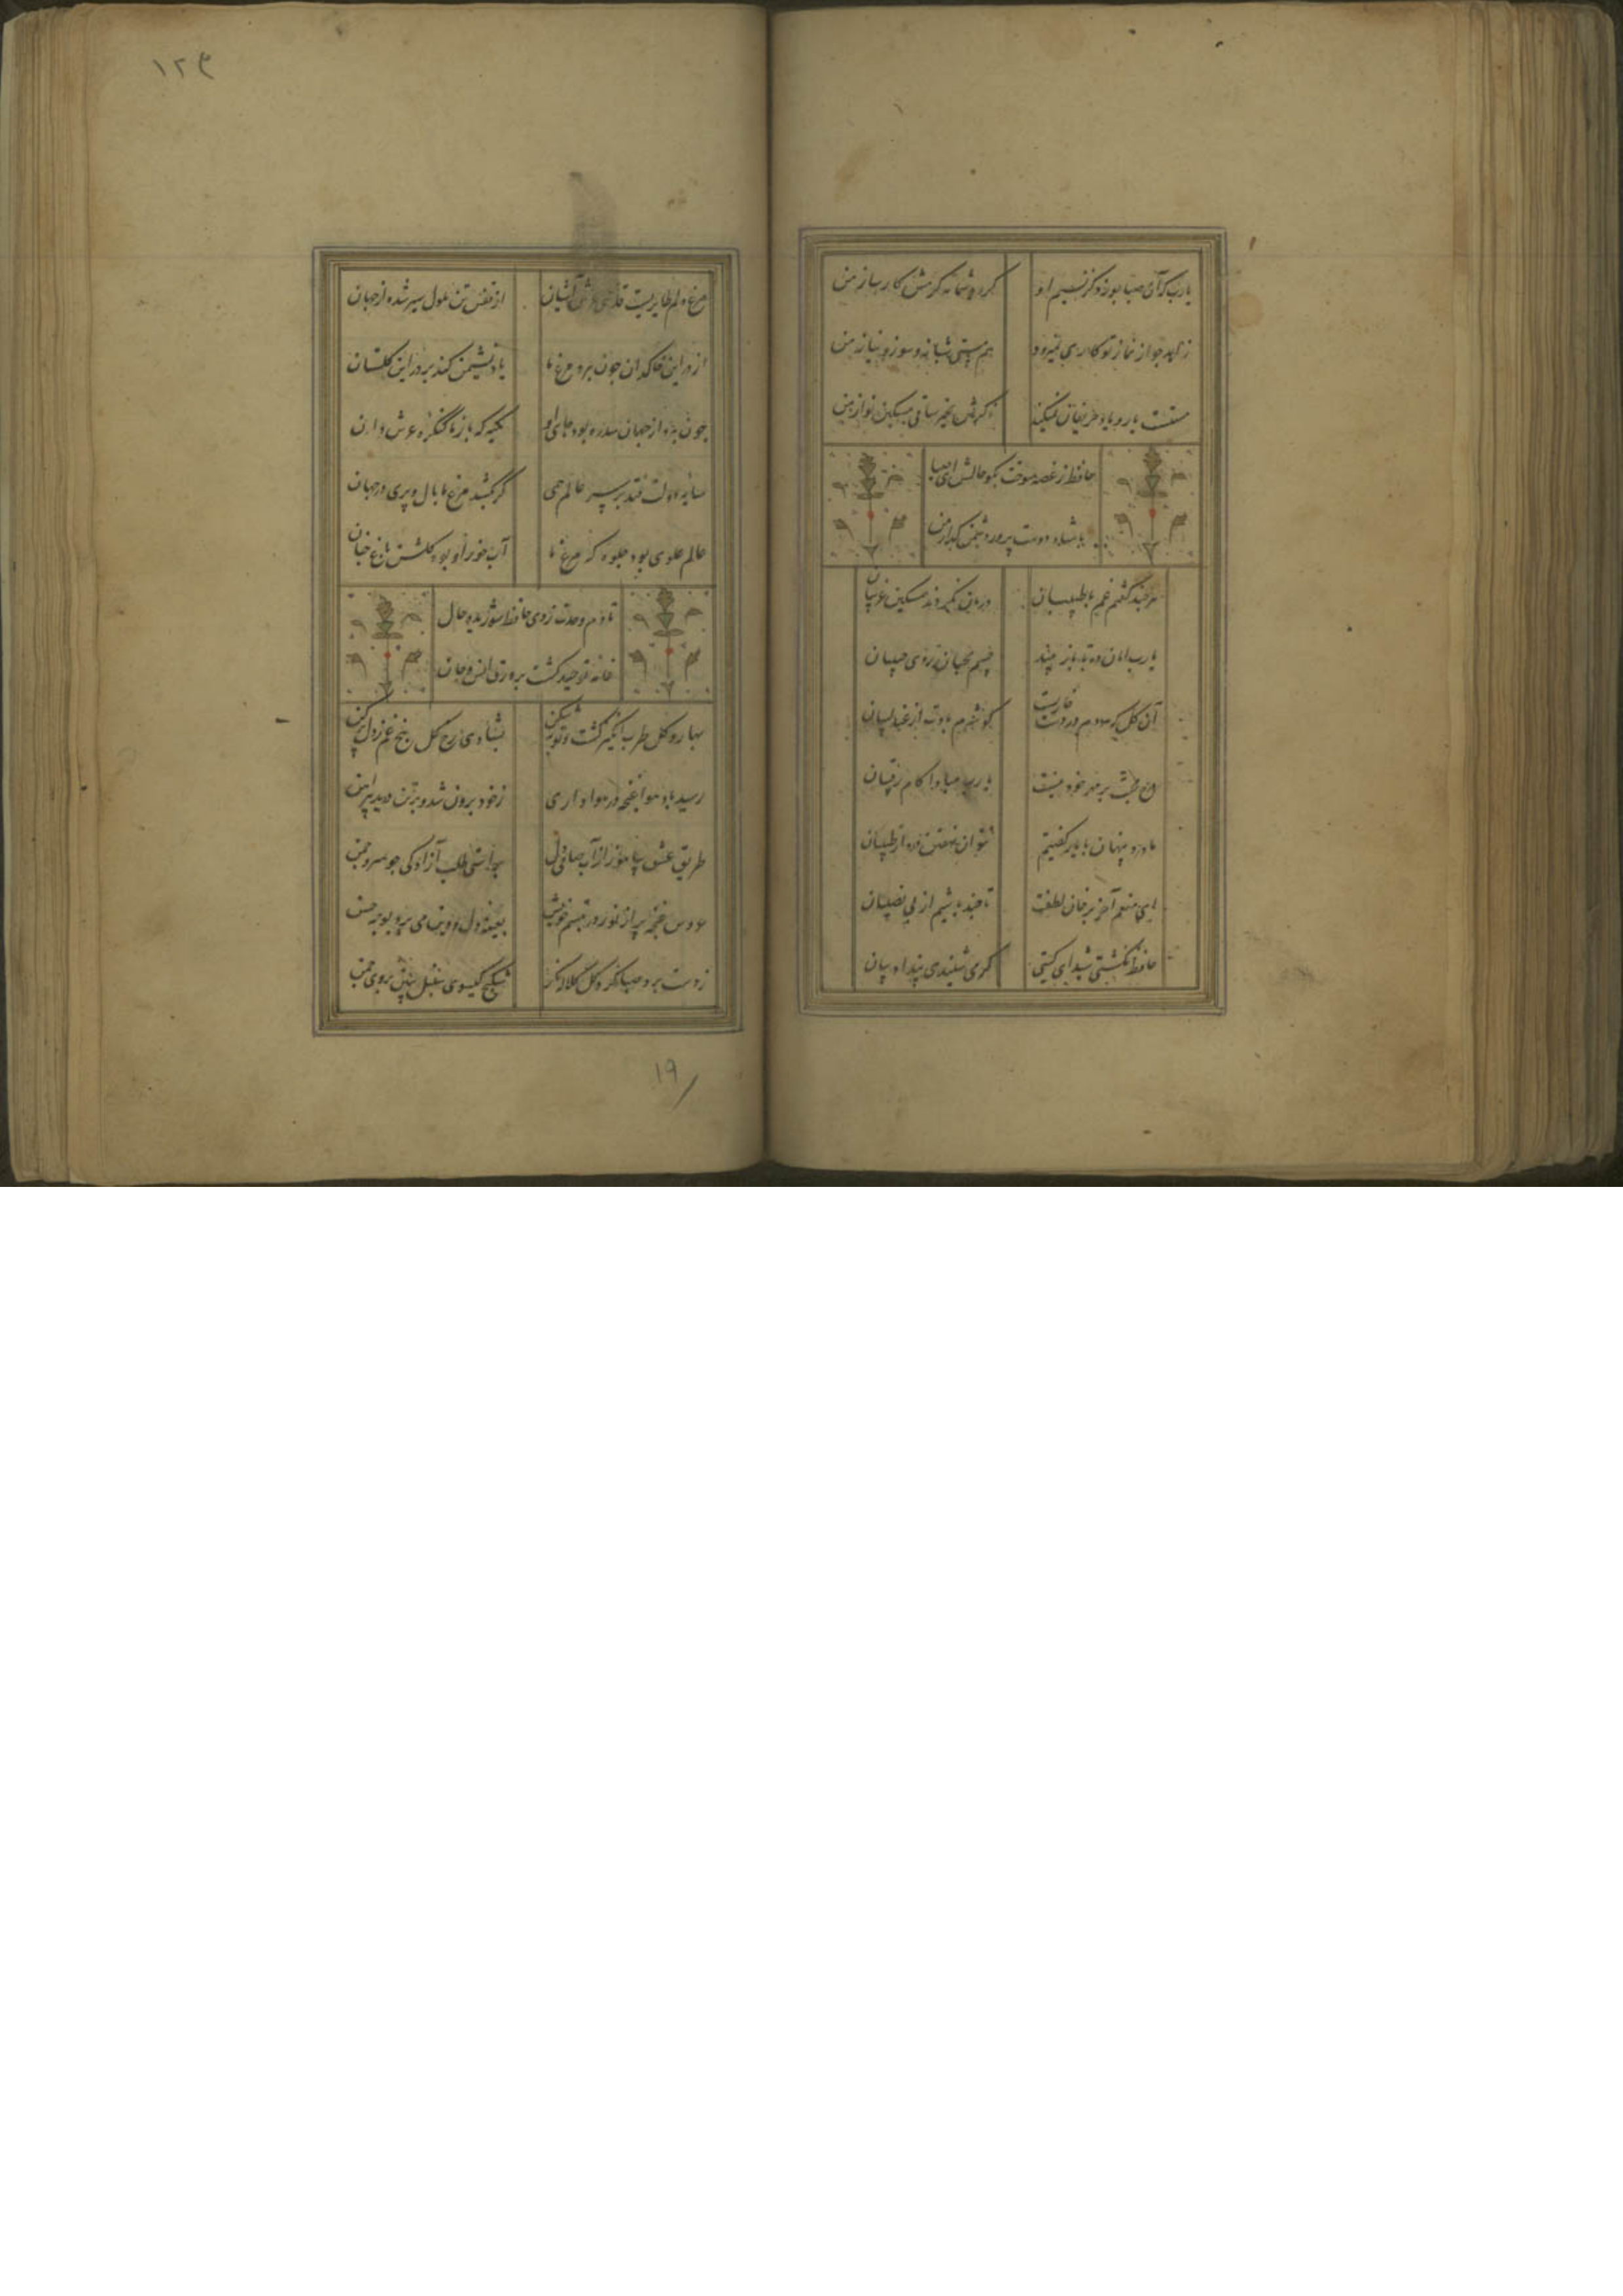 یارب کی آن صبا بوزد کز نسیم او
کردد شمامه کرمش کارساز من
زاهد جو از نماز تو کاری نمیرود
هم مستی شبانه و سوز و نیاز من
مستست یار و یاد حریفان نمیکند
ذکرش بخیر ساقی مسکین نواز من
حافظ ز غصه سوخت بکو حالش ای صبا
با شاه دوست پرور دشمن کداز من
هر چند کفتم غم با طبیبان
درمان نکردند مسکین غریبان
یارب امان ده تا باز بیند
چشم محبان روی حبیبان
آن کل که هر دم در دست خاریست
کو شرم بادت از عندلیبان
درج محبت بر مهر خود نیست
یا رب مبادا کام رقیبان
ما درد پنهان با یار کفتیم
نتوان نهفتن درد از طبیبان
ای منعم آخر بر خوان لطفت
تا چند باشیم از بی نصیبان
حافظ نکشتی شیدای کیتی
کر می شنیدی پند ادیبان
۱۲۹
مرغ دلم طایریست قدسی عرش آشیان
از قفس تن ملول سیر شده از جهان
از در این خاکدان چون بپرد مرغ ما
باز نشیمن کند بر در این کلستان
چون بپرد از جهان سدره بود جای او
تکیه که باز ما کنکره عرش دان
سایه دولت فتد بر سر عالم همی
کر بکشد مرغ ما بال و پری در جهان
عالم علوی بود جلوه که مرغ ما
آب خور او بود کلشن باغ جنان
تا دم وحدت زدی حافظ شوریده حال
خامه توحید کش بر ورق انس و جان
بهار و کل طرب انکیز کشت و توبه شکن
بشادی رخ کل بیخ غم ز دل برکن
رسید باد صبا غنچه در هواداری
ز خود برون شد و بر تن درید پیراهن
طریق عشق بیاموز از آب صافی دل
براستی طلب آزادکی جو سرو چمن
عروس غنچه بر از نور در تبسم خویش
بعینه دل و دین می برد بوجه حسن
ز دست برد صبا کرد کل کلاله نکر
شکنج کیسوی سنبل ببین بروی چمن
۱۹